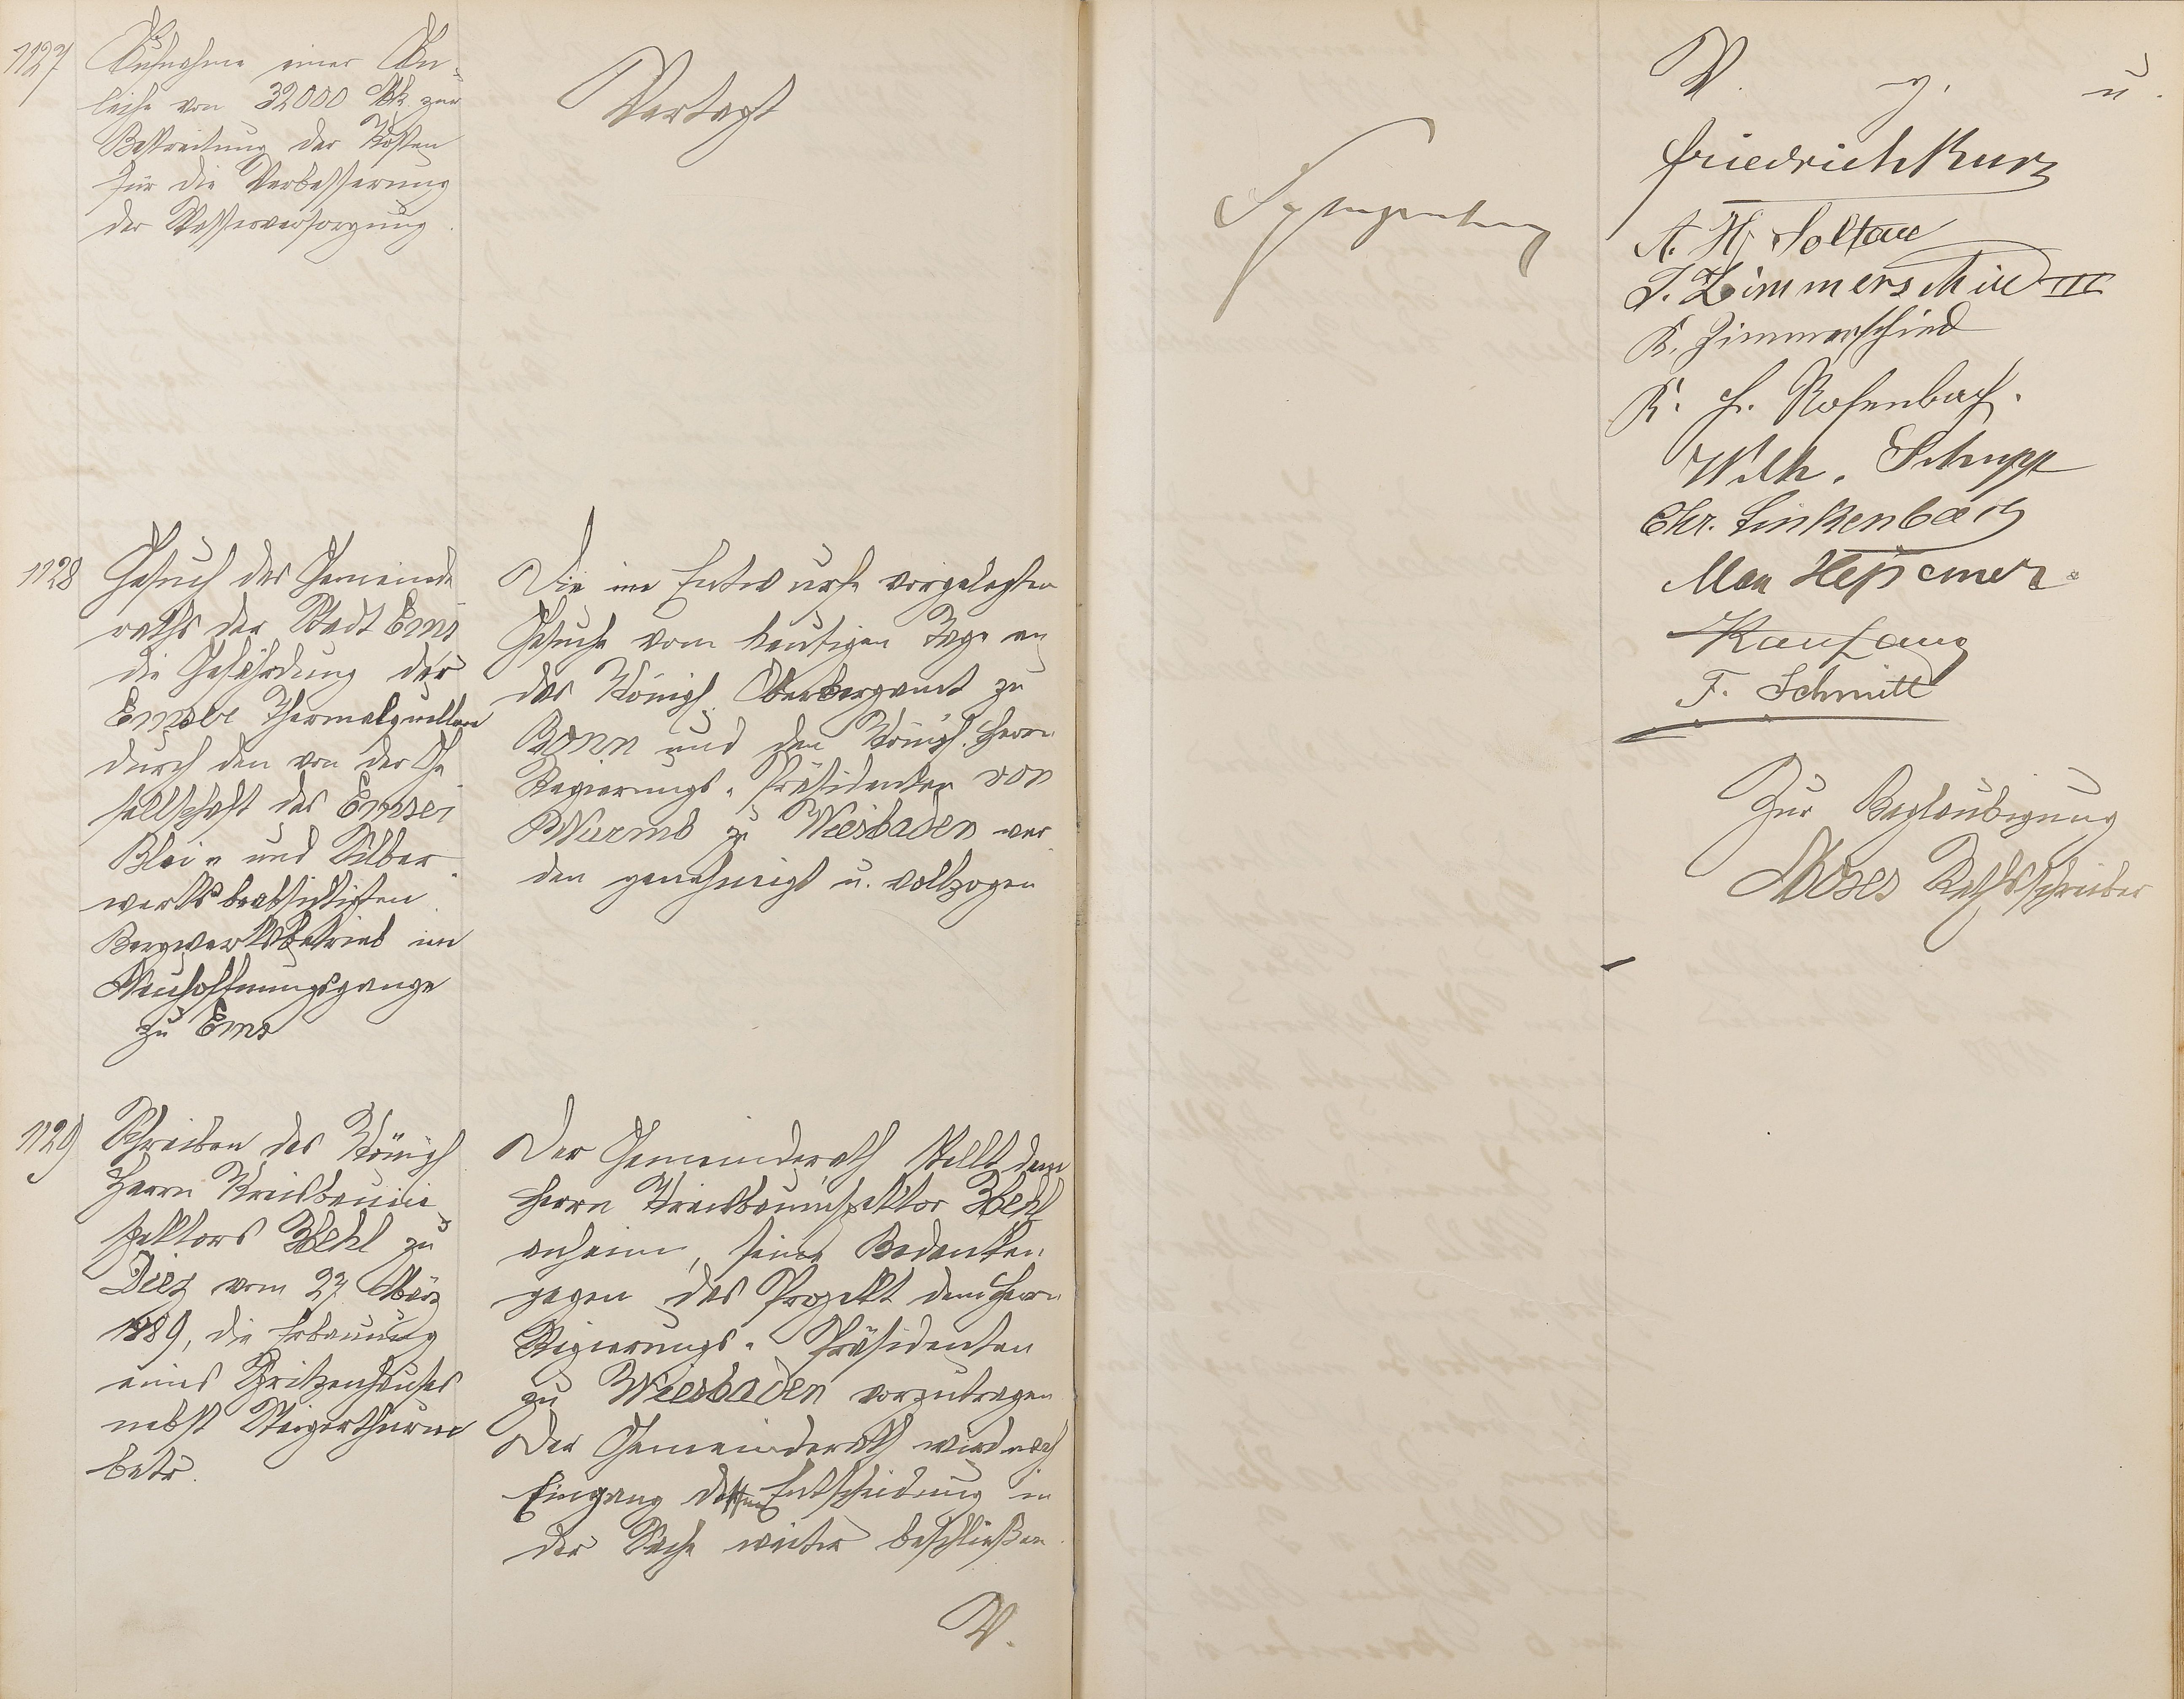 1127
Aufnahme einer An-
leihe von 32000 Mk. zur
Bestreitung der Kosten
für die Verbesserung
der Wasserversorgung.
Vertagt
1128
Gesuch des Gemeinde
raths der Stadt Ems
die Gefährdung der
Emser Thermalquellen
durch den von der Ge
sellschaft des Emser
Blei- und Silber-
werks beabsichtigten
Bergwerksbetrieb im
Neuhoffnungsgange
zu Ems
Die im Entwurfe vorgelegten
Gesuche vom heutigen Tage an
das Königl. Oberbergamt zu
Bonn und den Königl. Herrn
Regierungs-Präsidenten von
Wurmb zu Wiesbaden wer
den genehmigt u. vollzogen
1129
Schreiben des Königl
Herrn Kreisbauin-
spektors Hehl zu
Diez vom 27 März
1889, die Erbauung
eines Spritzenhauses
nebst Steigerthurm
betr.
Der Gemeinderath stellt dem
Herrn Kreisbauinspektor Hehl
anheim, seine Bedenken
gegen das Projekt dem Herrn
Regierungs-Präsidenten
zu Wiesbaden vorzutragen
Der Gemeinderath wird nach
Eingang dessen Entscheidung in
der Sache weiter beschließen.
V.
V. g. u.
Friedrich Kurz
A. H. Soltau
J. Zimmerschied III
K. Zimmerschied
K. H. Rosenbach.
Wilh. Schupp
Chr. Linkenbach
Max Heßemer.
Kaufang
F. Schmitt
Zur Beglaubigung
Moses Rathsschreiber